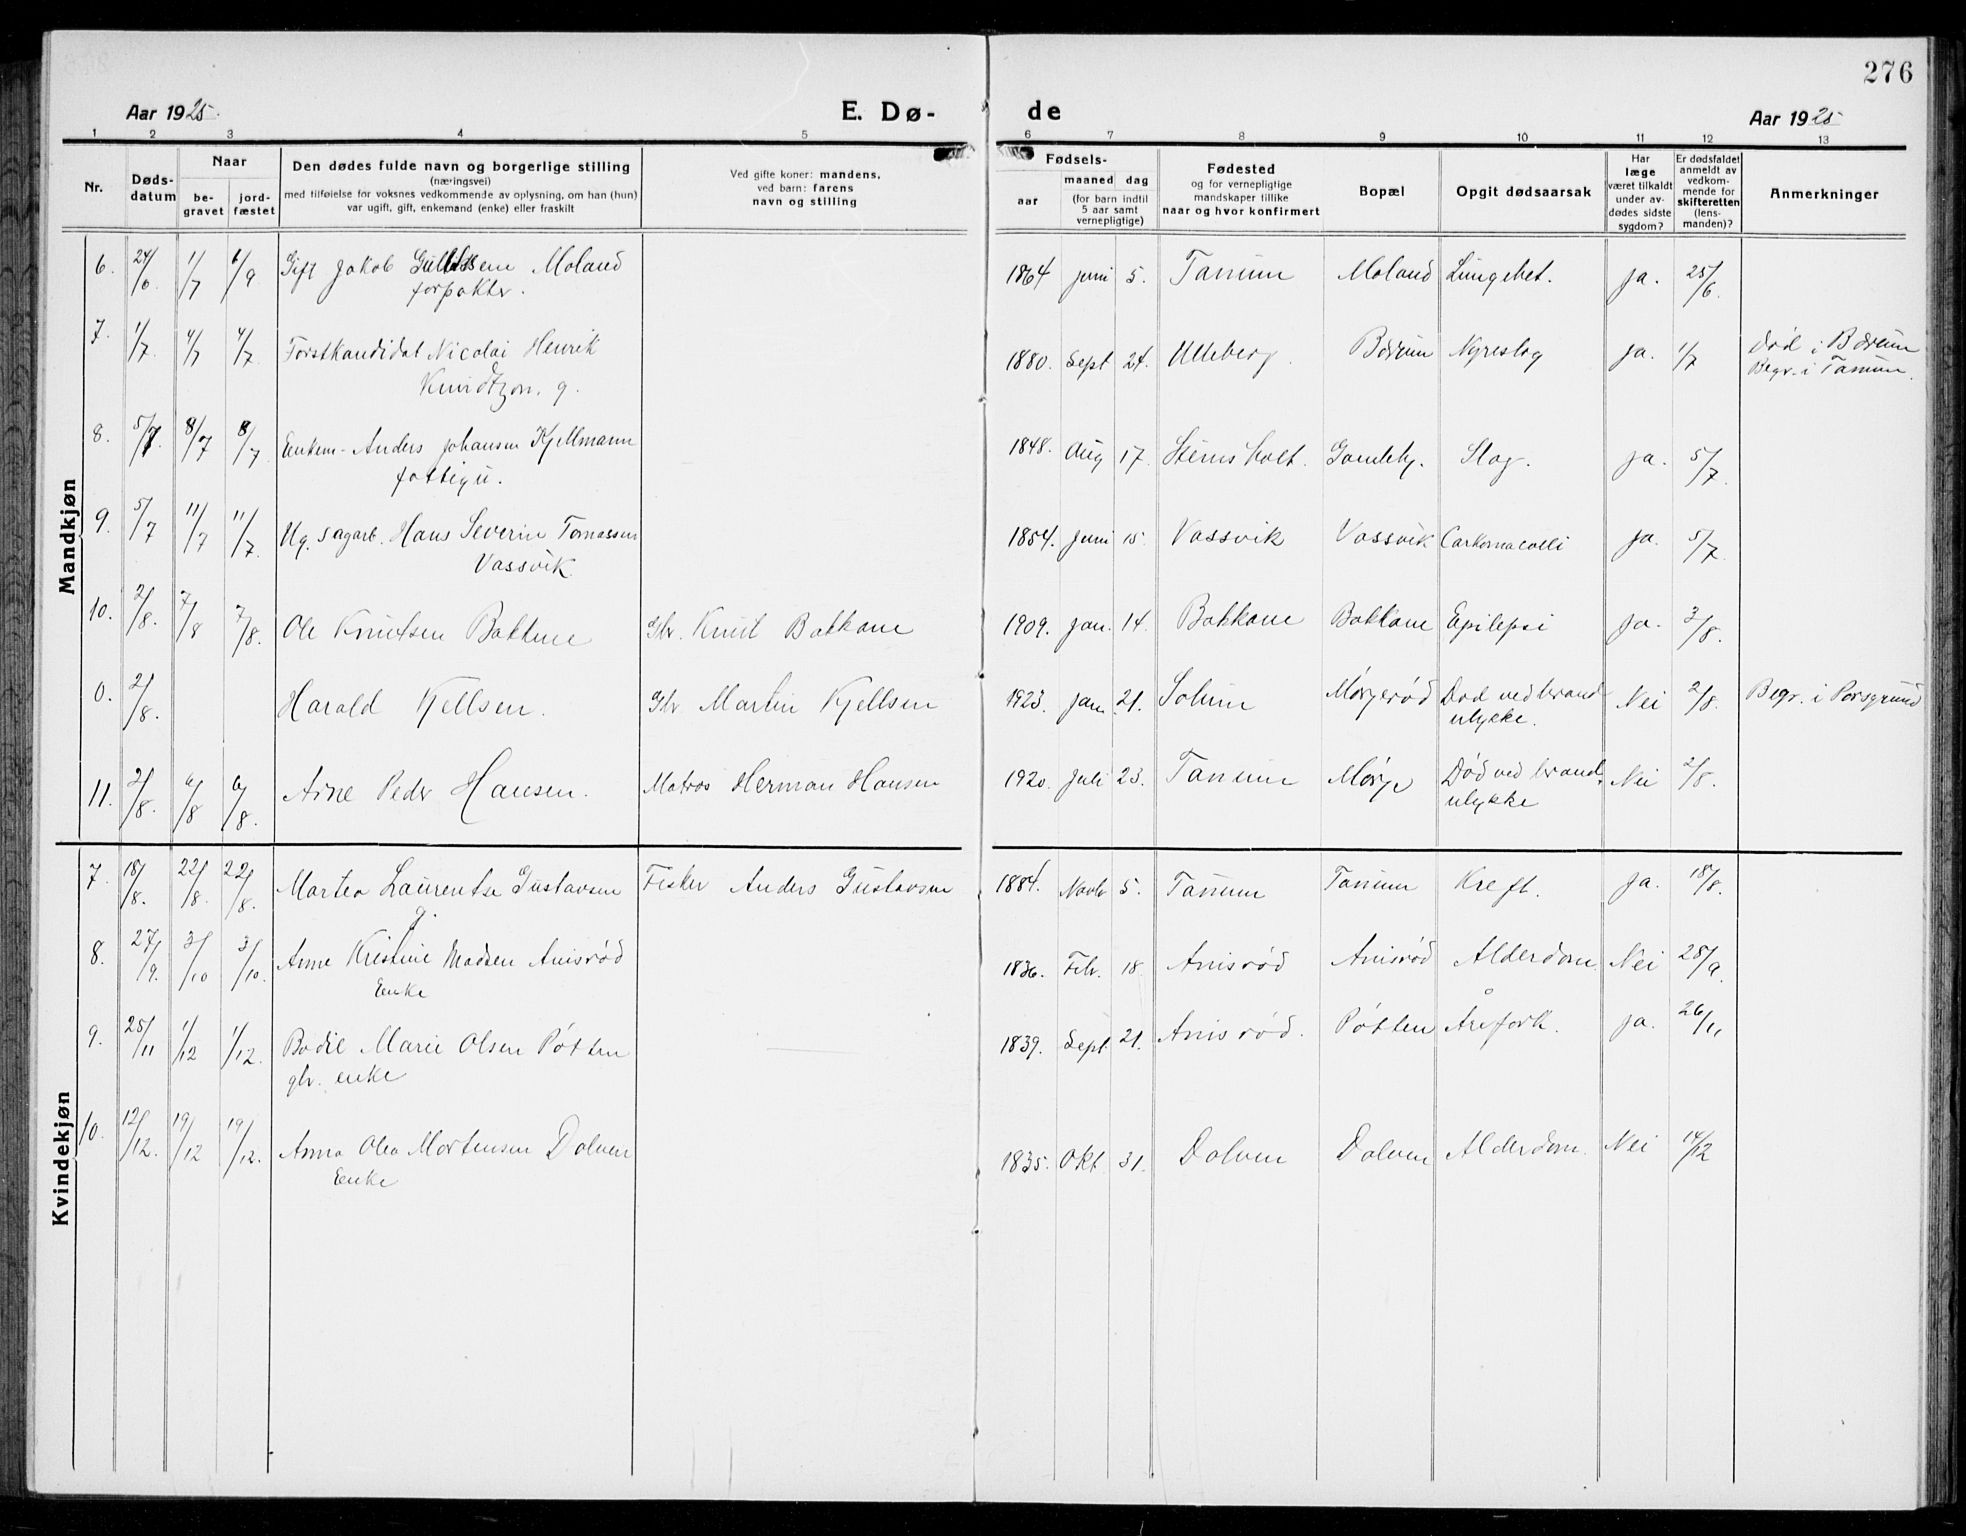 276
Aar 1925. E. Dø- de Aar 1925
1 2 3 4 5 6 7 8 9 10 11 12 13
Nr.
Døds-
datum
Naar
be-
gravet
jord-
fæstet
Den dødes fulde navn og borgerlige stilling
(næringsvei)
med tilføielse for voksnes vedkommende av oplysning, om han (hun)
var ugift, gift, enkemand (enke) eller fraskilt
Ved gifte koner: mandens,
ved barn: farens
navn og stilling
Fødsels-
aar
maaned dag
(for barn indtil
5 aar samt
vernepligtige)
Fødested
og for vernepligtige
mandskaper tillike
naar og hvor konfirmert
Bopæl
Opgit dødsaarsak
Har
læge
været tilkaldt
under av-
dødes sidste
sygdom?
Er dødsfaldet
anmeldt av
vedkom-
mende for
skifteretten
(lens-
manden)?
Anmerkninger
Mandkjøn
6. 24/6 1/7 6/9 Gift Jakob Moland 1864 juni 5. Tanum Moland Lungebet. Ja. 25/6.
forpakter.
7. 1/7 4/7 4/7. Forstkandidat Nicolai Henrik 1880. Sept 24. Ulleberg. Bærum Nyreslag Ja. 1/7 Død i Bærum
Knudtzon. g. Begr. i Tanum.
8. 5/7 8/7 8/7 Enkem. Anders Johansen Kjellmann 1848. Aug 17. Stensholt. Gamleh. Slag. Ja. 5/7.
fattigu.
9. 5/7 11/7 11/7. Ug. sagarb. Hans Severin Tomassen 1854. Juni 15. Vassvik Vassvik Ja. 5/7.
Vassvik
10. 2/8. 7/8 7/8. Ole Knutsen Bakkene Gbr. Knut Bakkane 1909. Jan. 14. Bakkane Bakkane Epilepsi Ja. 3/8.
0. 2/8. Harald Kjellsen. Gbr Martin Kjellsen 1923. Jan. 21. Solum Mørjerød Død ved brand Nei 2/8. Begr. i Porsgrund
ulykke.
11. 2/8. 6/8 6/8. Arne Peder Hansen. Matros Herman Hansen 1920. Juli 23. Tanum Mørje Død ved brand- Nei 2/8.
ulykke
Kvindekjøn
7. 18/8. 22/8. 22/8. Martea Laurentse Gustavsen Fisker Anders Gustavsen 1884. Novbr 5. Tanum Tanum Kreft. Ja. 18/8.
g.
8. 27/9. 3/10 3/10. Anne Kristine Madsen Anisrød 1836. Febr. 18. Anisrød Anisrød Alderdom Nei 28/9
Enke
9. 25/11 1/12 1/12. Bodil Marie Olsen Pøtten 1839. Sept. 21. Anisrød. Pøtten Årefork. Ja. 26/11
gbr. enke
10. 12/12. 19/12 19/12. Anna Olea Mortensen Dolven 1835. Okt. 31. Dolven Dolven Alderdom. Nei 14/12
Enke